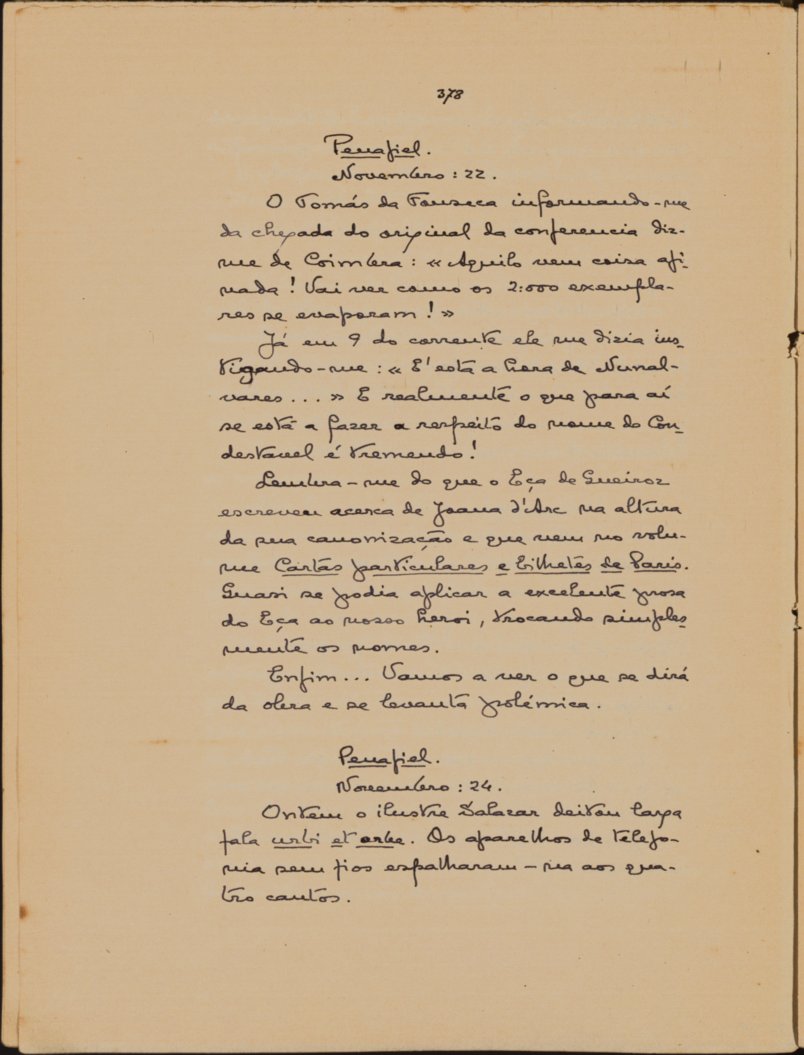 378
Penafiel.
Novembro : 22.
O Tomás da Fonseca informando-me
da chegada do original da conferencia diz-
me de Coimbra : « Aquilo vem coisa afi-
nada ! Vai ver como os 2:000 exempla-
res se evaporam ! »
Já em 9 do corrente ele me dizia ins-
tigando-me : « E' está a hora de Nunal-
vares . . . » E realmente o que para aí
se está a fazer a respeito do nome do Con-
destavel é tremendo !
Lembra-me do que o Eça de Queiroz
escreveu acerca de Joana d'Arc na altura
da sua canonização e que vem no volu-
me Cartas particulares e bilhetes de Paris.
Quasi se podia aplicar a excelente prosa
do Eça ao nosso heroi, trocando simples-
mente os nomes.
Enfim... Vamos a ver o que se dirá
da obra e se levanta polémica.
Penafiel.
Novembro : 24.
Ontem o ilustre Salazar deitou larga
fala urbi et orbe. Os aparelhos de telefo-
nia sem fios espalharam-na aos qua-
tro cantos.